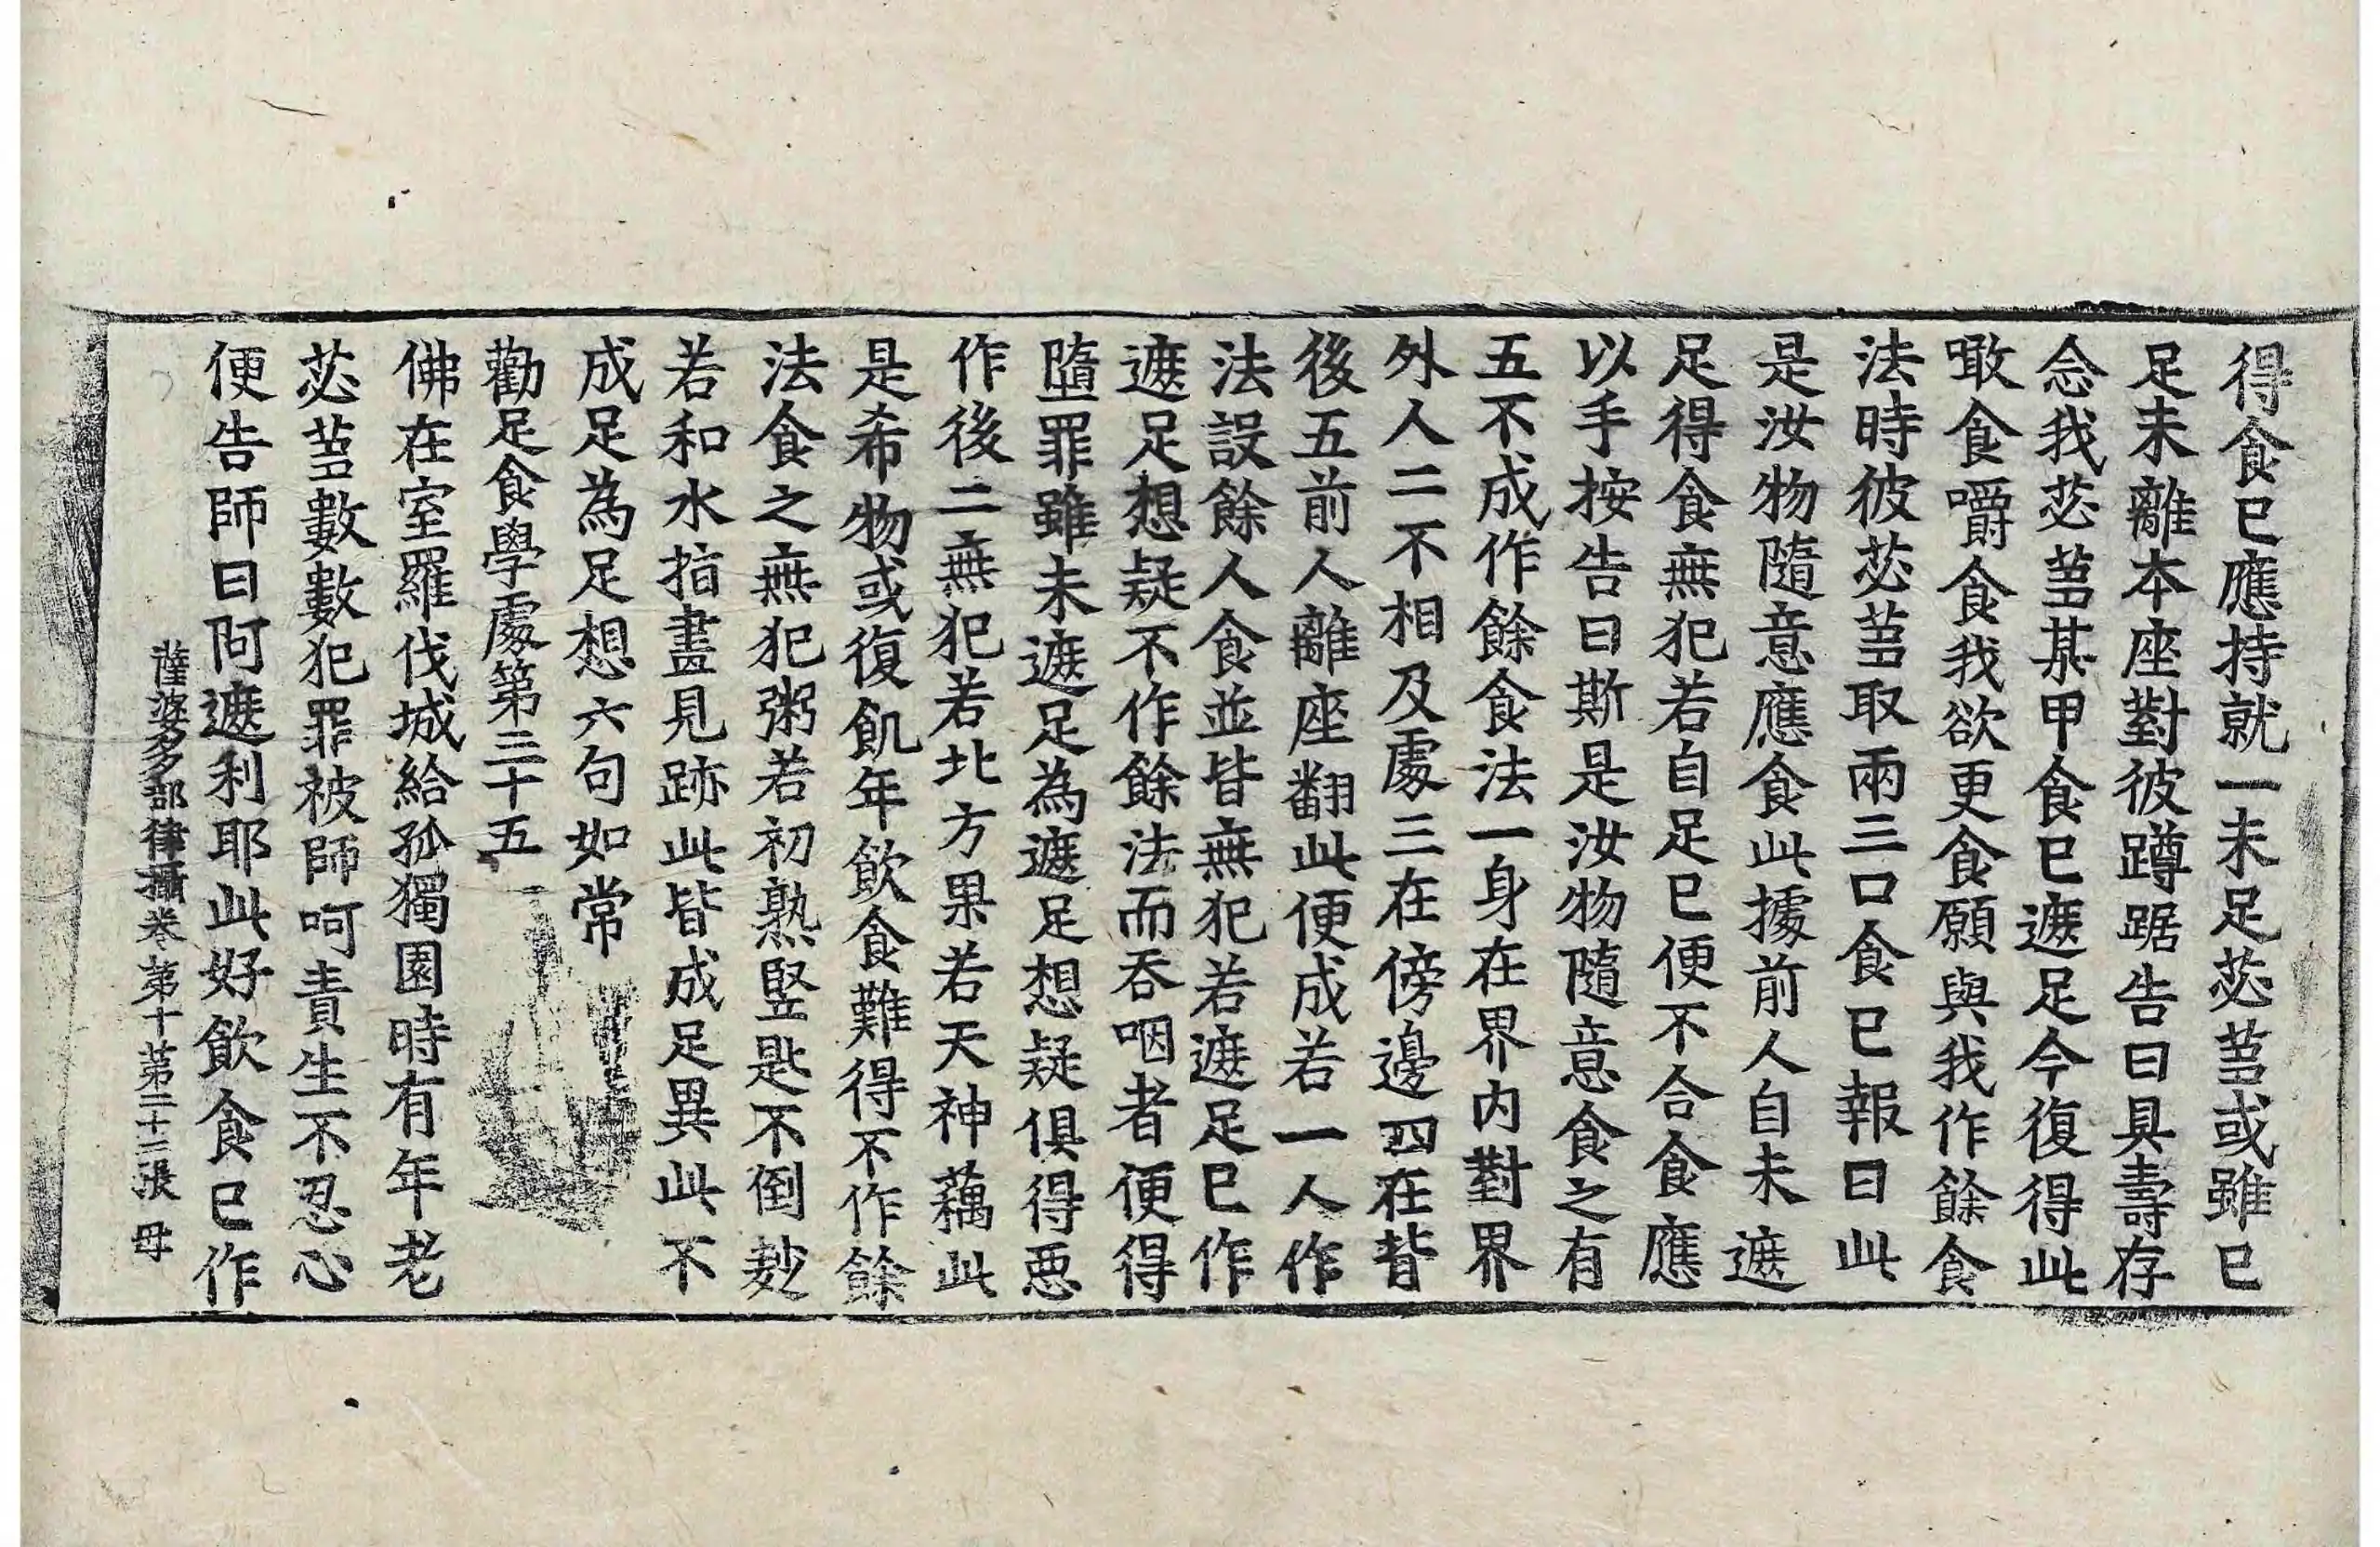 得食已應持就一未足苾蒭或雖已
足未離本座對彼蹲踞告曰具壽存
念我苾蒭某甲食已遮足今復得此
噉食嚼食我欲更食願與我作餘食
法時彼苾蒭取兩三口食已報曰此
是汝物隨意應食此據前人自未遮
足得食無犯若自足已便不合食應
以手按告曰斯是汝物隨意食之有
五不成作餘食法一身在界內對界
外人二不相及處三在傍邊四在背
後五前人離座翻此便成若一人作
法設餘人食並皆無犯若遮足已作
遮足想疑不作餘法而吞咽者便得
墮罪雖未遮足為遮足想疑俱得惡
作後二無犯若北方果若天神藕此
是希物或復飢年飲食難得不作餘
法食之無犯粥若初熟竪匙不倒麨
若和水指畫見跡此皆成足異此不
成足為足想六句如常
勸足食學處第三十五
佛在室羅伐城給孤獨園時有年老
苾蒭數數犯罪被師呵責生不忍心
便告師曰阿遮利耶此好飲食已作
薩婆多部律攝卷第十第二十三張 母